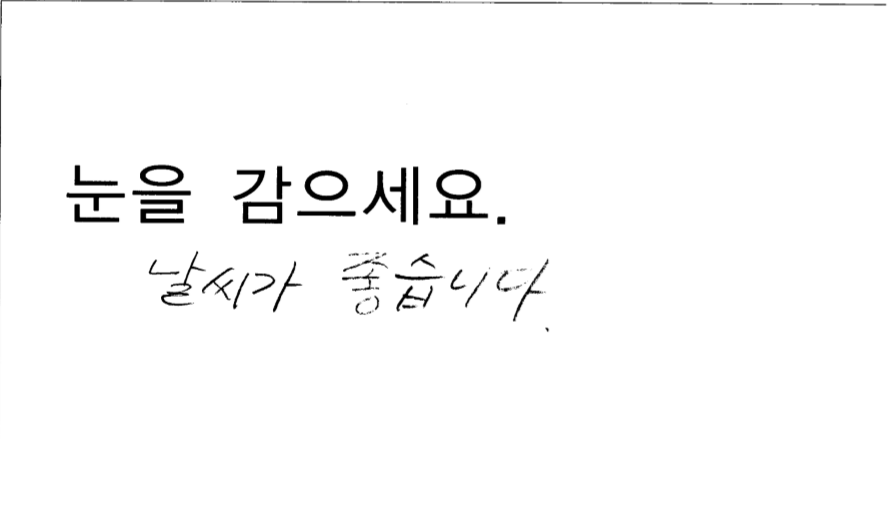 눈을 감으세요.
날씨가 좋습니다.